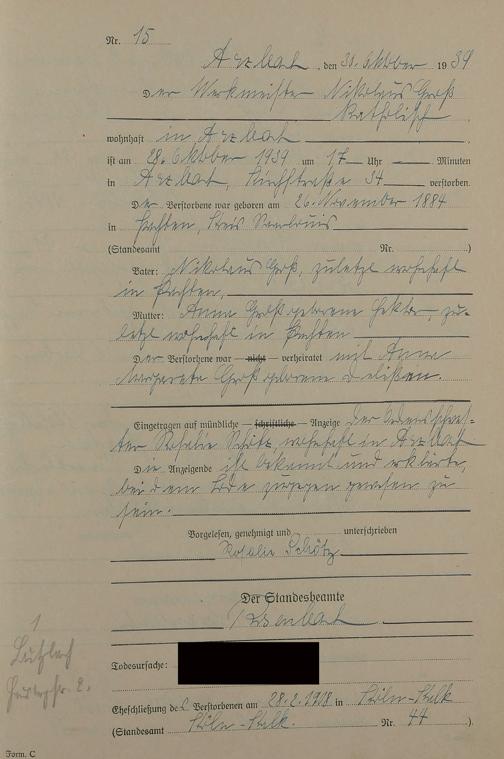 Nr. 15
Arzbach, den 31. Oktober 1939
Der Werkmeister Nikolaus Groß
katholisch
wohnhaft in Arzbach
ist am 28. Oktober 1939 um 17 Uhr Minuten
in Arzbach, Kirchstraße 34 verstorben.
Der Verstorbene war geboren am 26. November 1884
in Pachten, Kreis Saarlouis
(Standesamt Nr. )
Vater: Nikolaus Groß, zuletzt wohnhaft
in Pachten,
Mutter: Anna Groß geborene Hektor, zu-
letzt wohnhaft in Pachten
Der Verstorbene war — nicht — verheiratet mit Anna
Margareta Groß geborene
Eingetragen auf mündliche — schriftliche — Anzeige der Ordensschwes-
ter Rosalie Schütz, wohnhaft in Arzbach
Die Anzeigende ist bekannt und erklärte,
bei dem Tode zugegen gewesen zu
sein.
Vorgelesen, genehmigt und unterschrieben
Rosalie Schütz
Der Standesbeamte
Todesursache:
Eheschließung des Verstorbenen am 28.2.1918 in Köln-Kalk
(Standesamt Köln-Kalk Nr. 44 ).
1
Form. C